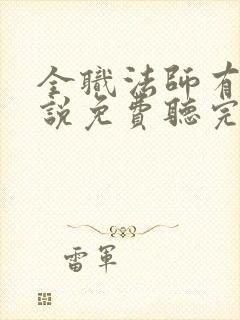 全職法師有
說免費聽完
雷軍